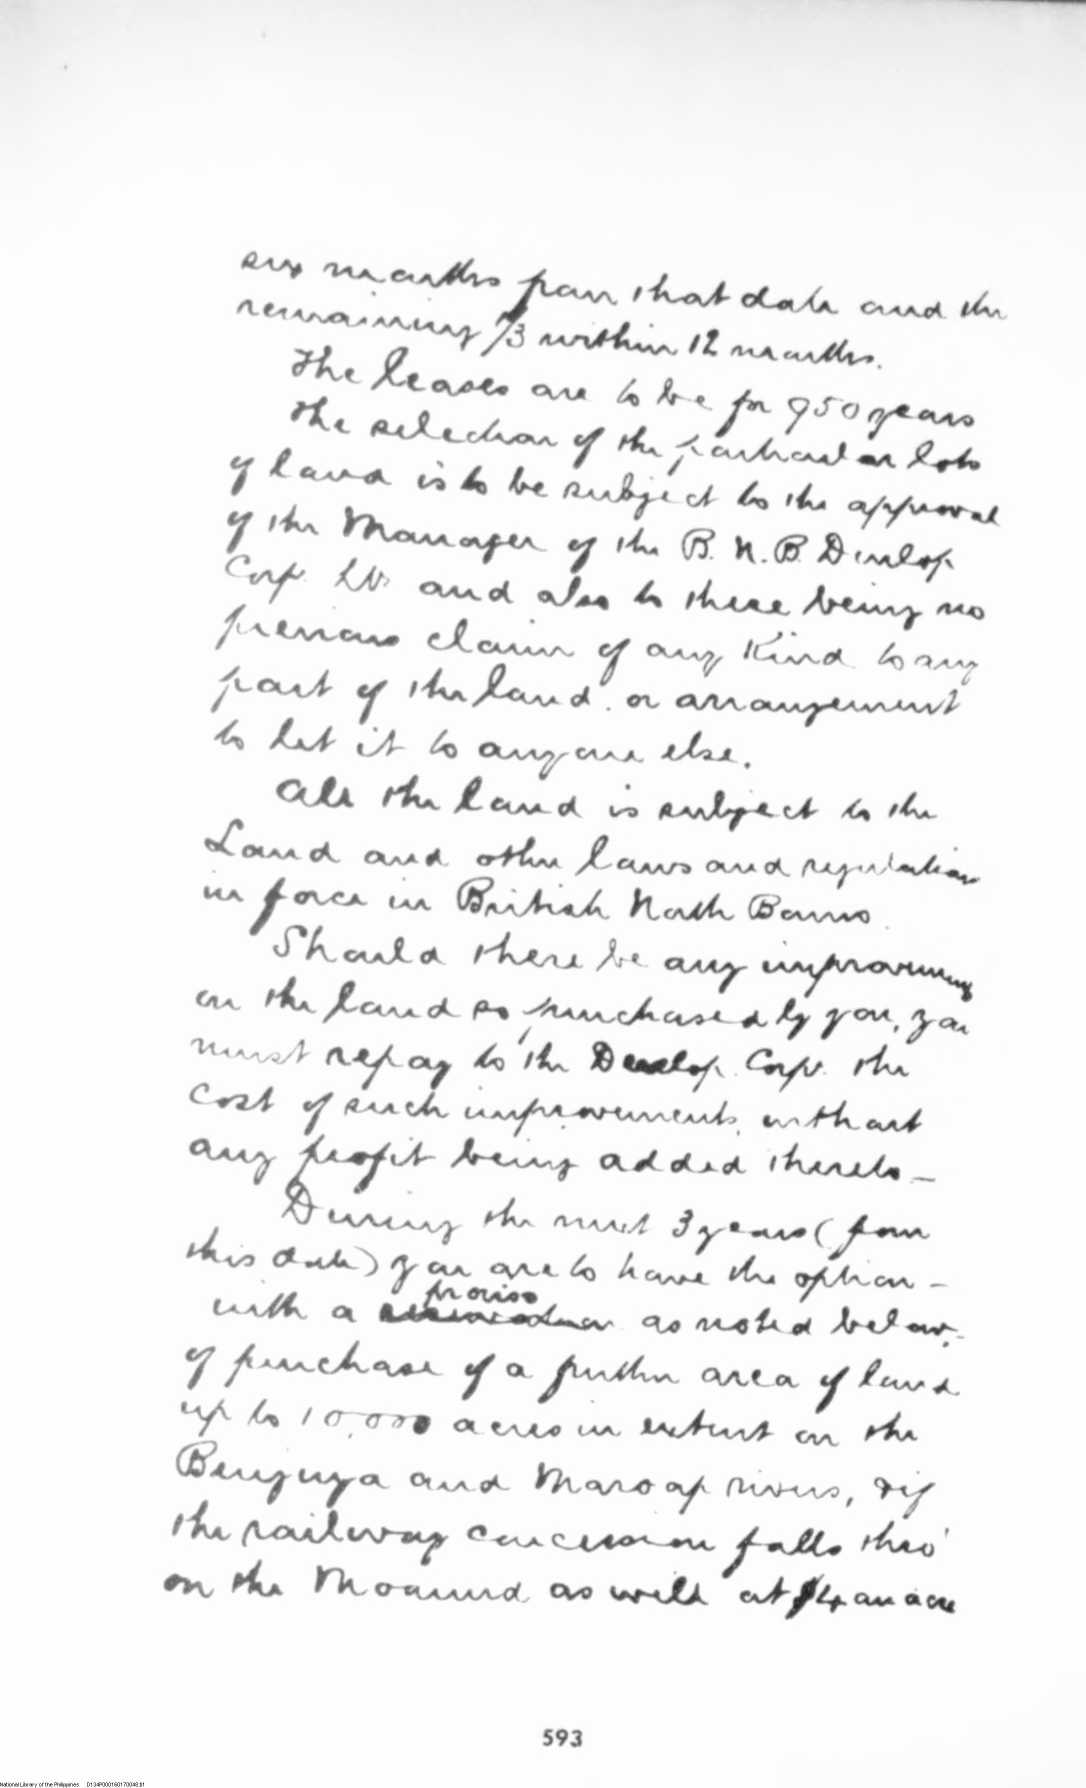 six months from that date and the
remaining 1/3 within 12 months.
The leases are to be for 950 years
The selection of the particular lots
of land is to be subject to the approval
of the Manager of the B. N. B. Develop.
Corp. Ld. and also to there being no
previous claim of any Kind to any
part of the land. or arrangement
to let it to anyone else.
All the land is subject to the
Land and other laws and regulations
in force in British North Borneo.
Should there be any improvements
on the land so purchased by you, you
must repay to the Develop. Corp. the
Cost of such improvements, without
any profit being added thereto —
During the next 3 years (from
this date) you are to have the option —
proviso
with a as noted below,—
of purchase of a further area of land
up to 10,000 acres in extent on the
Bengaya and Maroap rivers, & if
the railway concession falls thro'
on the Moaund as well at $4 an acre
593
National Library of the Philippines